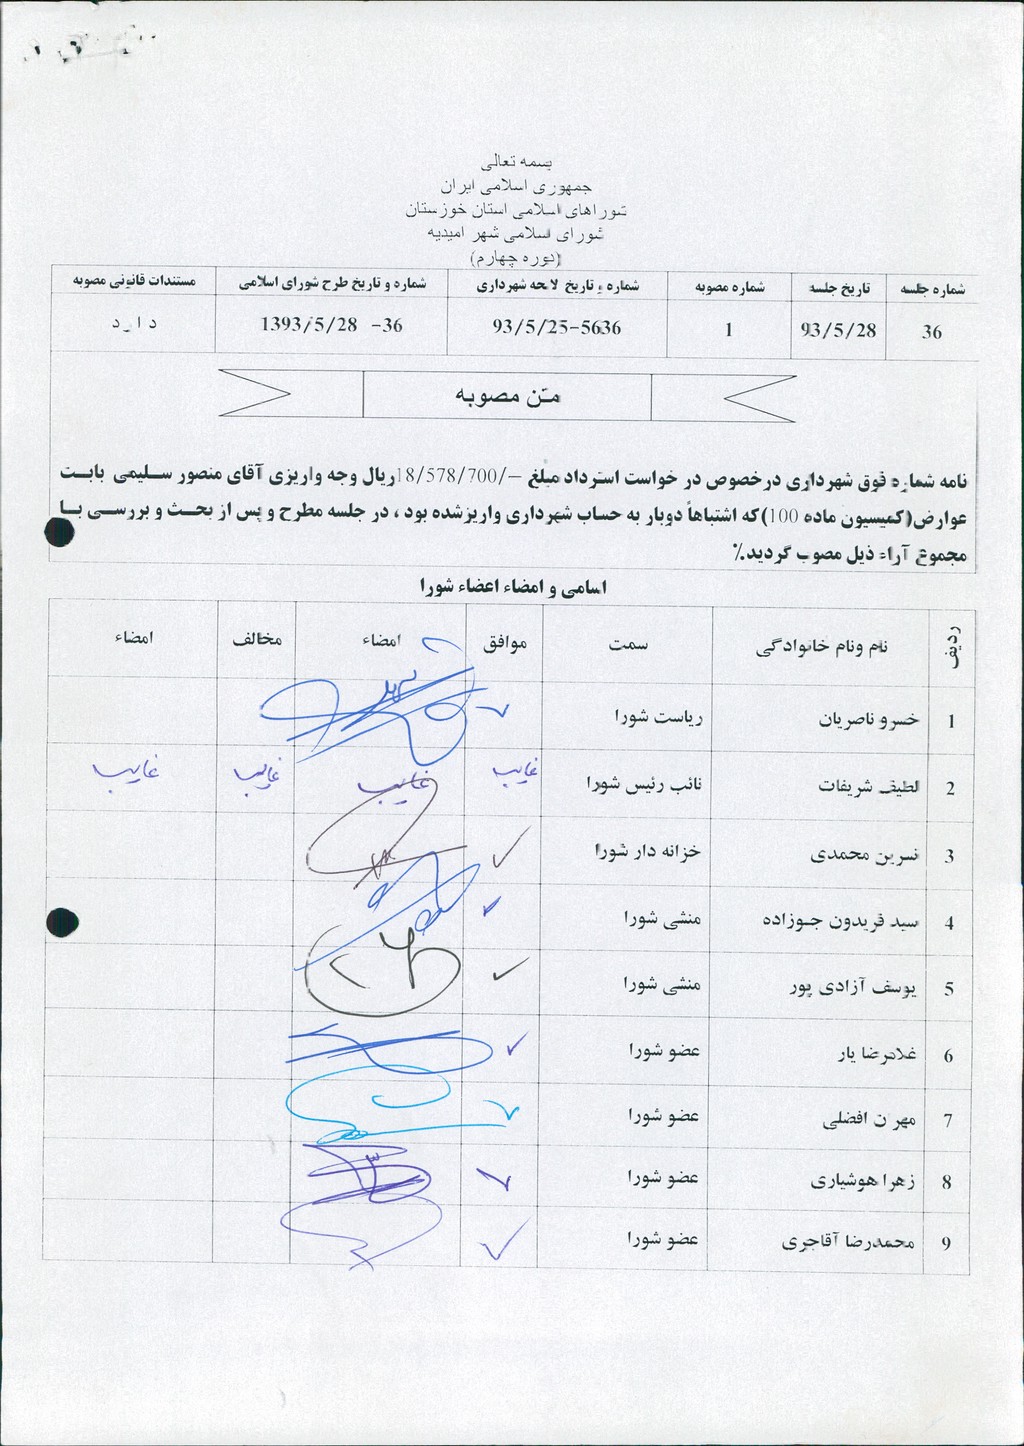 بسمه تعالی
جمهوری اسلامی ایران
شوراهای اسلامی استان خوزستان
شورای اسلامی شهر امیدیه
(دوره چهارم)
شماره جلسه تاریخ جلسه شماره مصوبه شماره و تاریخ لایحه شهرداری شماره و تاریخ طرح شورای اسلامی مستندات قانونی مصوبه
36 93/5/28 1 93/5/25-5636 1393/5/28 -36 دارد
متن مصوبه
نامه شماره فوق شهرداری درخصوص در خواست استرداد مبلغ -/18/578/700ریال وجه واریزی آقای منصور سلیمی بابت
عوارض(کمیسیون ماده 100)که اشتباهاً دوبار به حساب شهرداری واریزشده بود ، در جلسه مطرح و پس از بحث و بررسی با
مجموع آراء ذیل مصوب گردید.٪
اسامی و امضاء اعضاء شورا
ردیف نام ونام خانوادگی سمت موافق امضاء مخالف امضاء
1 خسرو ناصریان ریاست شورا ✓
2 لطیف شریفات نائب رئیس شورا غایب غایب غایب غایب
3 نسرین محمدی خزانه دار شورا ✓
4 سید فریدون جوزاده منشی شورا ✓
5 یوسف آزادی پور منشی شورا ✓
6 غلامرضا یار عضو شورا ✓
7 مهران افضلی عضو شورا ✓
8 زهرا هوشیاری عضو شورا ✓
9 محمدرضا آقاجری عضو شورا ✓